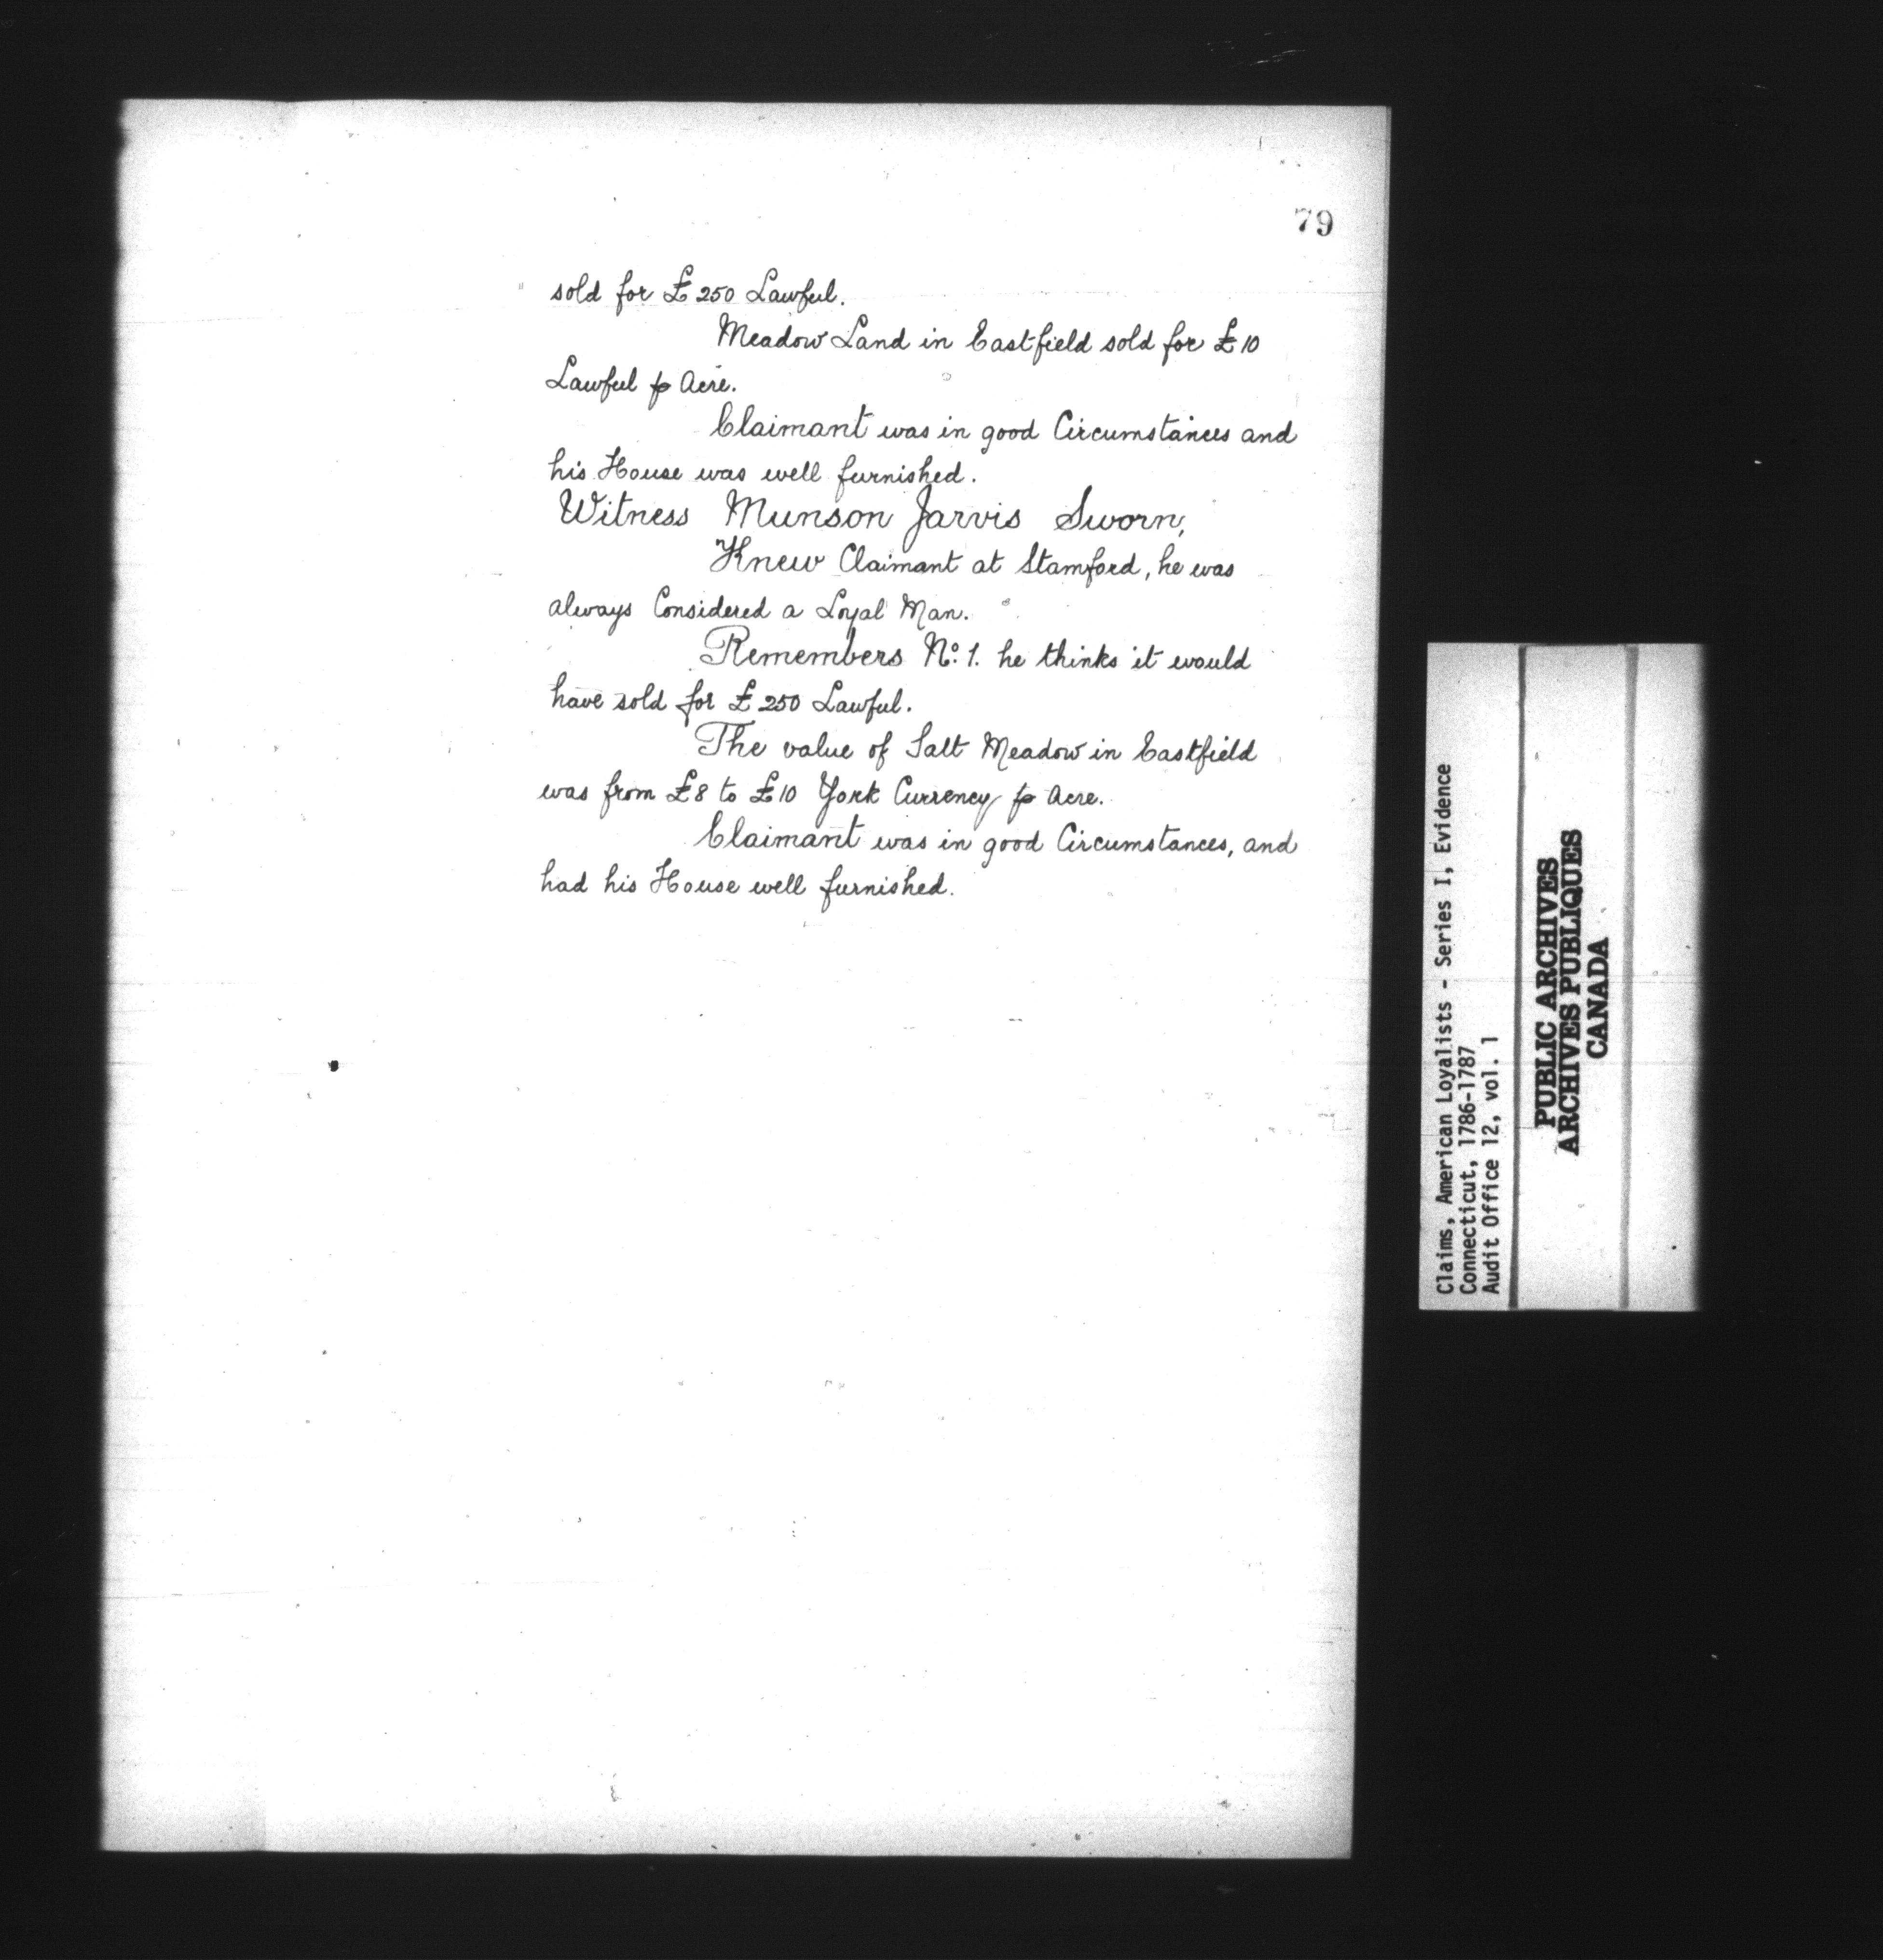 79
sold for £250 Lawful.
Meadow Land in Eastfield sold for £10
Lawful p Acre.
Claimant was in good Circumstances and
his House was well furnished.
Witness Munson Jarvis Sworn,
Knew Claimant at Stamford, he was
always Considered a Loyal Man.
Remembers No. 1. he thinks it would
have sold for £250 Lawful.
The value of Salt Meadow in Eastfield
was from £8 to £10 York Currency p Acre.
Claimant was in good Circumstances, and
had his House well furnished.
Claims, American Loyalists - Series I, Evidence
Connecticut, 1786-1787
Audit Office 12, vol. 1
PUBLIC ARCHIVES
ARCHIVES PUBLIQUES
CANADA